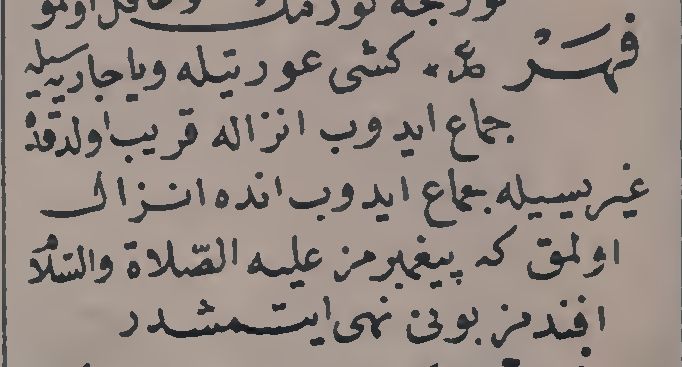 فهر كشى عورتيله ويا جاريه سيله
جماع ايدوب انزاله قريب اولدقده
غيريسيله جماع ايدوب انده انزال
اولمق كه پيغمبرمز عليه الصّلاة والسّلام
افندمز بونى نهى ايتمشدر